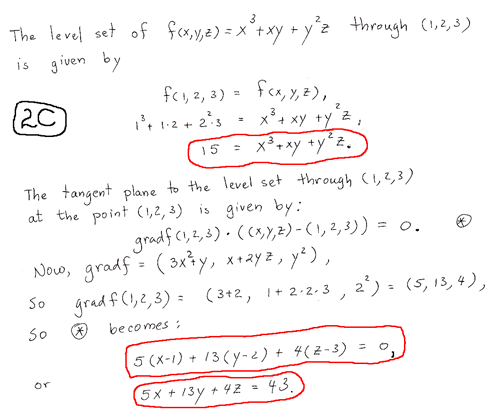 The level set of f(x,y,z) = x³+xy + y²z through (1,2,3)
is given by
f(1,2,3) = f(x,y,z),
2C
1³+ 1·2 + 2²·3 = x³+xy+y²z,
15 = x³+xy+y²z.
The tangent plane to the level set through (1,2,3)
at the point (1,2,3) is given by:
gradf(1,2,3) · ((x,y,z)-(1,2,3)) = 0. ⊛
Now, gradf = (3x²+y, x+2yz, y²),
So gradf(1,2,3) = (3+2, 1+2·2·3, 2²) = (5,13,4),
So ⊛ becomes:
5(x-1) + 13(y-2) + 4(z-3) = 0,
or
5x + 13y + 4z = 43.